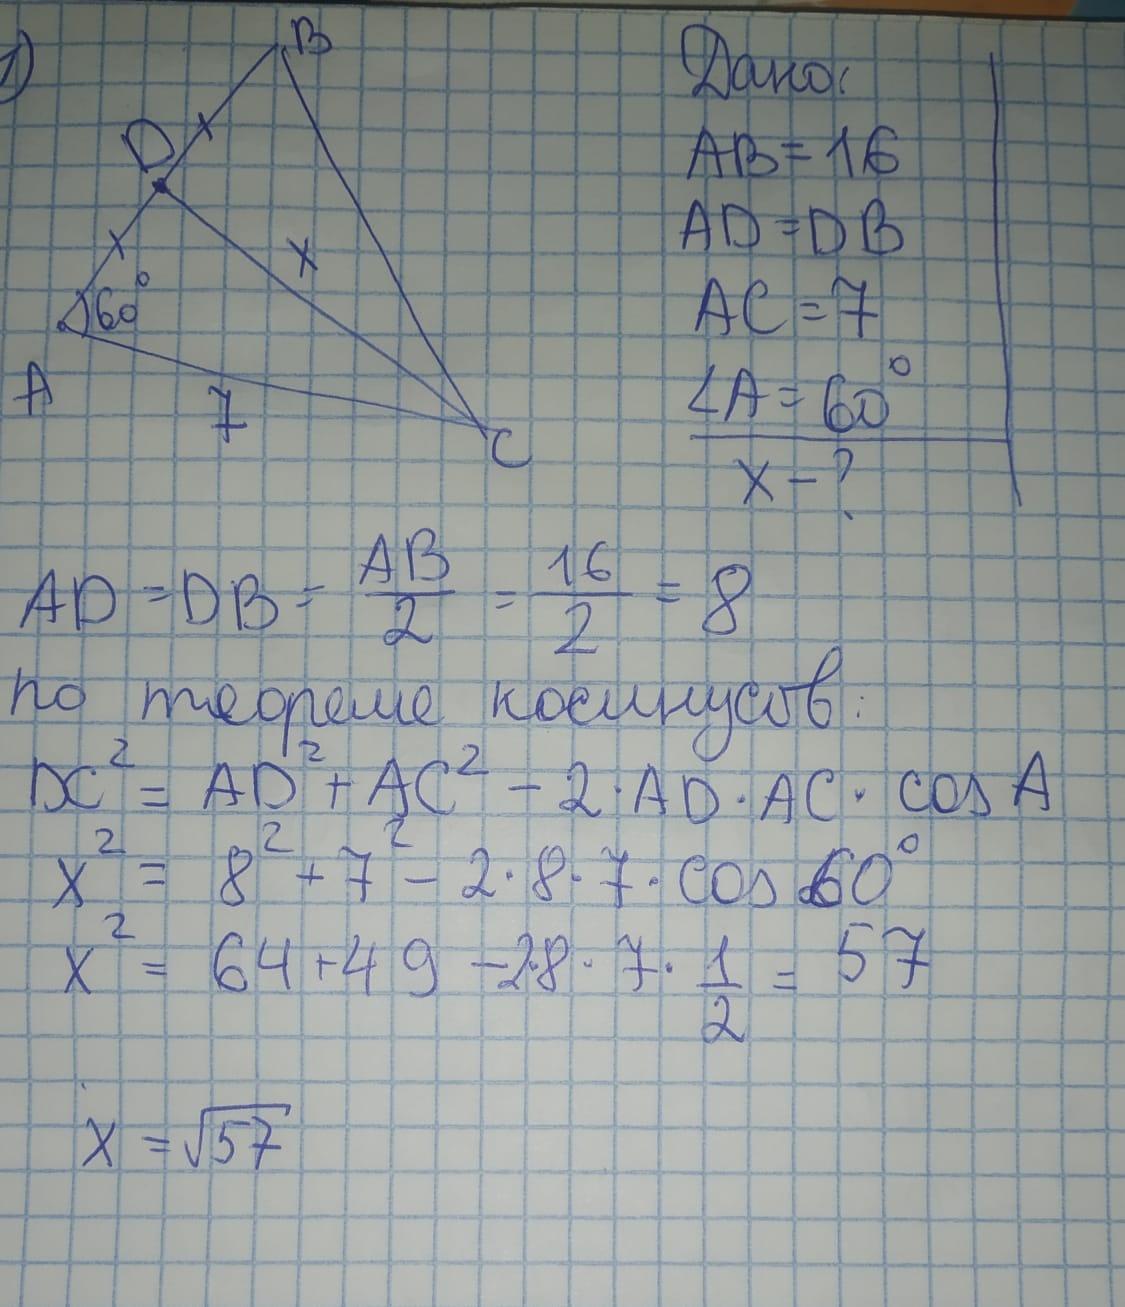 1)
B
D
x
60°
A
7
C
Дано:
AB = 16
AD = DB
AC = 7
∠A = 60°
x - ?
AD = DB = AB/2 = 16/2 = 8
по теореме косинусов:
DC² = AD² + AC² - 2·AD·AC·cos A
x² = 8² + 7² - 2·8·7·cos 60°
x² = 64 + 49 - 2·8·7·1/2 = 57
x = √57